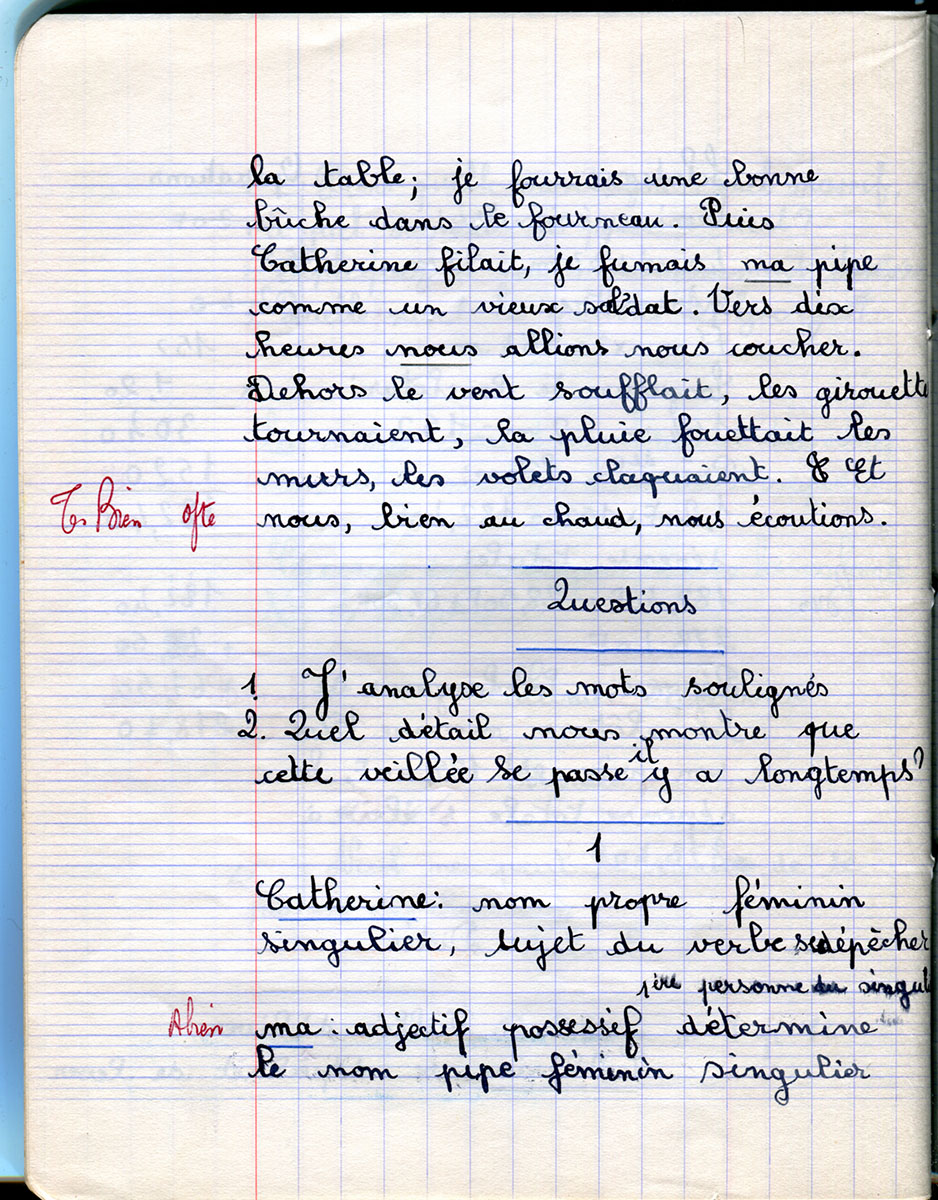 la table; je fourrais une bonne
bûche dans le fourneau. Puis
Catherine filait, je fumais ma pipe
comme un vieux soldat. Vers dix
heures nous allions nous coucher.
Dehors le vent soufflait, les girouette
tournaient, la pluie fouettait les
murs, les volets claquaient. Et
T. Bien
nous, bien au chaud, nous écoutions.
Questions
1. J'analyse les mots soulignés
2. Quel détail nous montre que
cette veillée se passe il y a longtemps?
1
Catherine: nom propre féminin
singulier, sujet du verbe se dépêcher
1ère personne du singul
ABien
ma: adjectif possessif détermine
le nom pipe féminin singulier